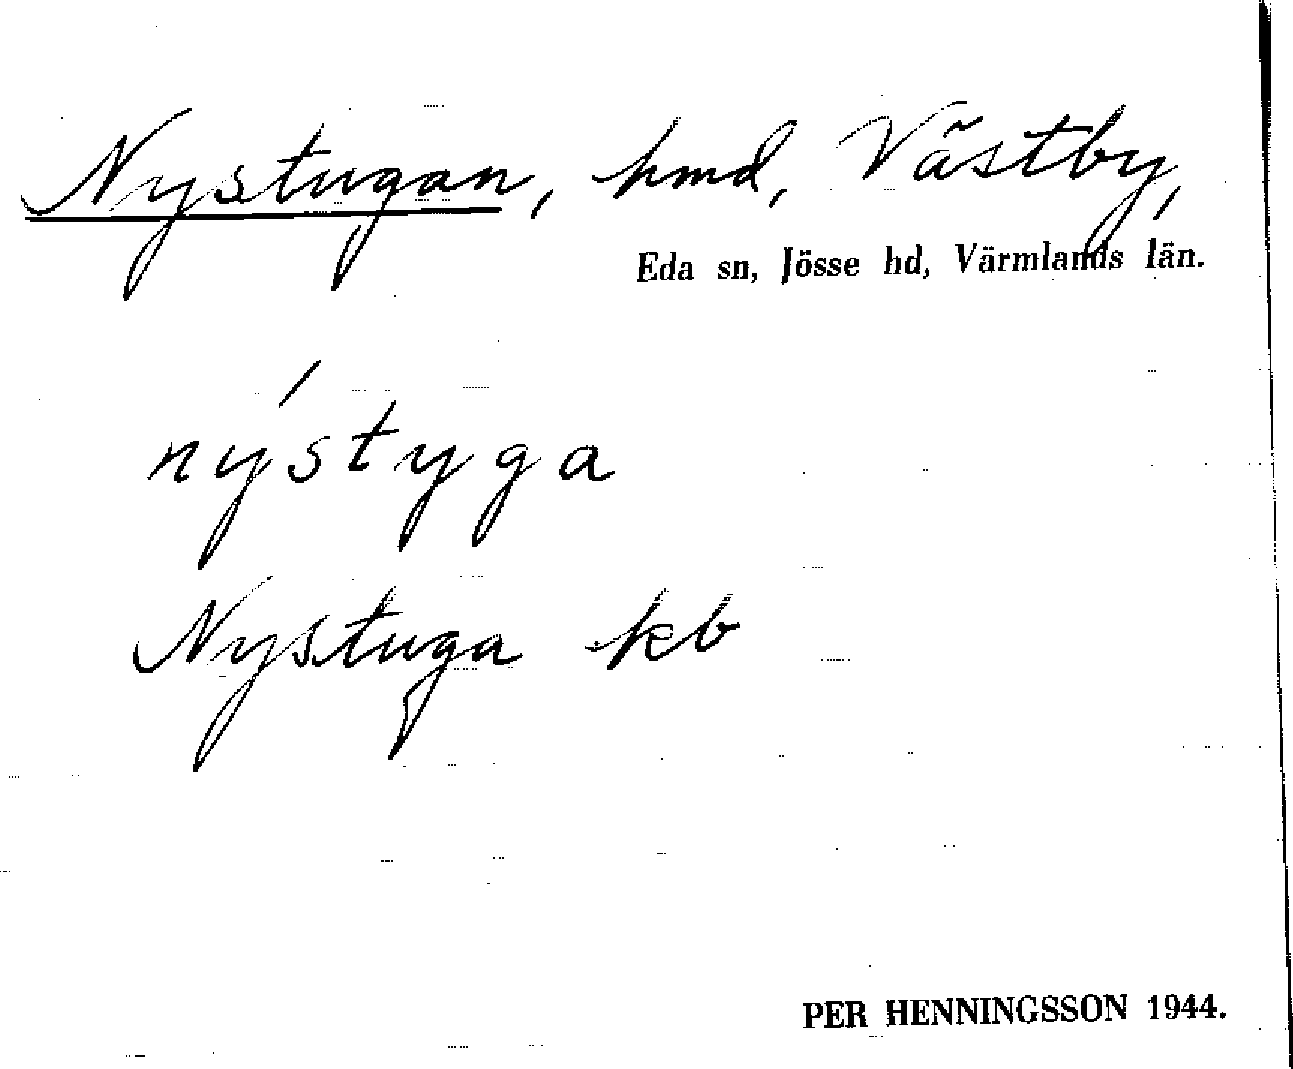 Nystugan, hmd, Västby,
Eda sn, Jösse hd, Värmlands län.
nýstyga
Nystuga kb
PER HENNINGSSON 1944.